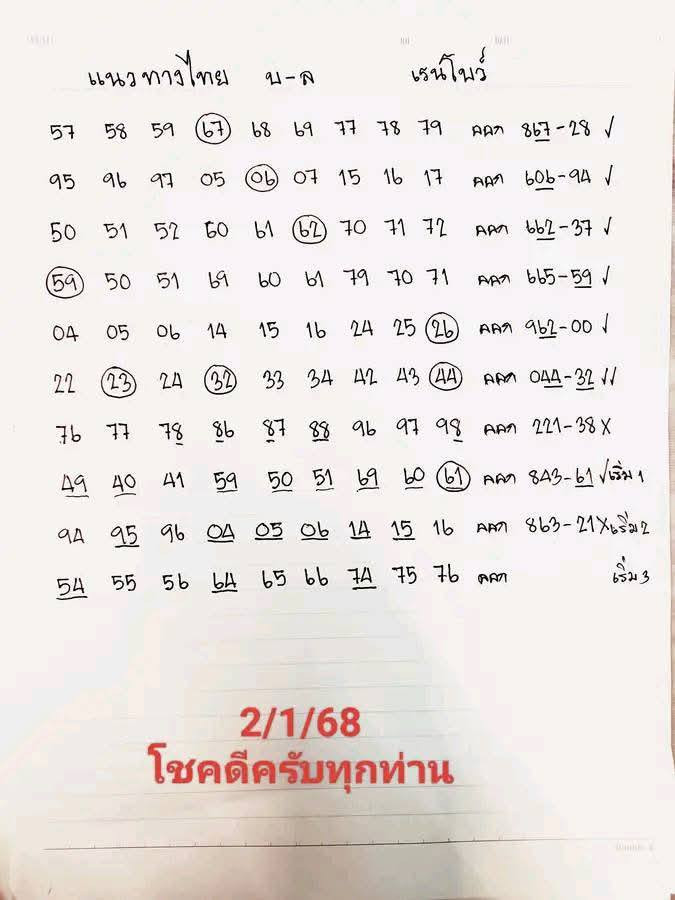 แนวทางไทย บ-ล เรนโบว์
57 58 59 67 68 69 77 78 79 ออก 867-28 ✓
95 96 97 05 06 07 15 16 17 ออก 606-94 ✓
50 51 52 60 61 62 70 71 72 ออก 662-37 ✓
59 50 51 69 60 61 79 70 71 ออก 665-59 ✓
04 05 06 14 15 16 24 25 26 ออก 962-00 ✓
22 23 24 32 33 34 42 43 44 ออก 044-32 ✓✓
76 77 78 86 87 88 96 97 98 ออก 221-38 X
49 40 41 59 50 51 69 60 61 ออก 843-61 ✓ เริ่ม 1
94 95 96 04 05 06 14 15 16 ออก 863-21 X เริ่ม 2
54 55 56 64 65 66 74 75 76 ออก เริ่ม 3
2/1/68
โชคดีครับทุกท่าน